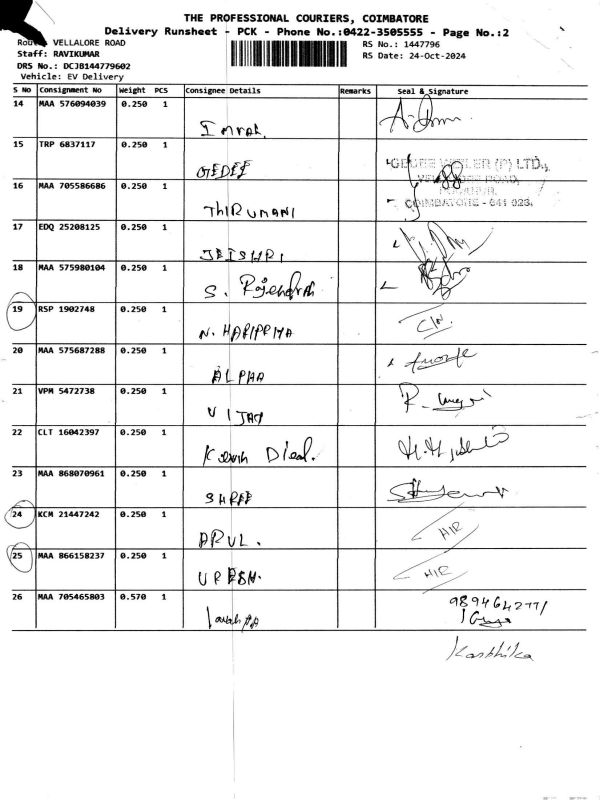 THE PROFESSIONAL COURIERS, COIMBATORE
Delivery Runsheet - PCK - Phone No.:0422-3505555 - Page No.:2
Route: VELLALORE ROAD
Staff: RAVIKUMAR
DRS No.: DCJB144779602
Vehicle: EV Delivery
RS No.: 1447796
RS Date: 24-Oct-2024
S No Consignment No Weight PCS Consignee Details Remarks Seal & Signature
14 MAA 576094039 0.250 1
15 TRP 6837117 0.250 1
GEDEE
GEDEE WEILER (P) LTD.,
COIMBATORE - 641 023.
16 MAA 705586686 0.250 1
THIRUMANI
17 EDQ 25208125 0.250 1
JEISHRI
18 MAA 575980104 0.250 1
S. Rajendran
19 RSP 1902748 0.250 1
N. HARIPRIYA
C/N.
20 MAA 575687288 0.250 1
ALPHA
21 VPM 5472738 0.250 1
VIJAY
R.
22 CLT 16042397 0.250 1
23 MAA 868070961 0.250 1
SHREE
24 KCM 21447242 0.250 1
ARUL.
H/R
25 MAA 866158237 0.250 1
URESH.
H/R
26 MAA 705465803 0.570 1
Karthika